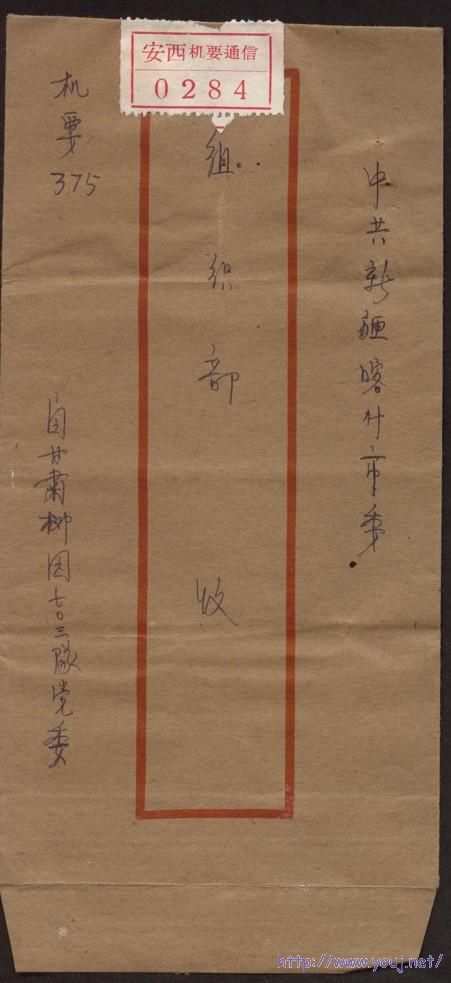 安西机要通信
0284
中共新疆喀什市委
组织部 收
机要
375
自甘肃柳园七〇三队党委
http://www.youj.net/